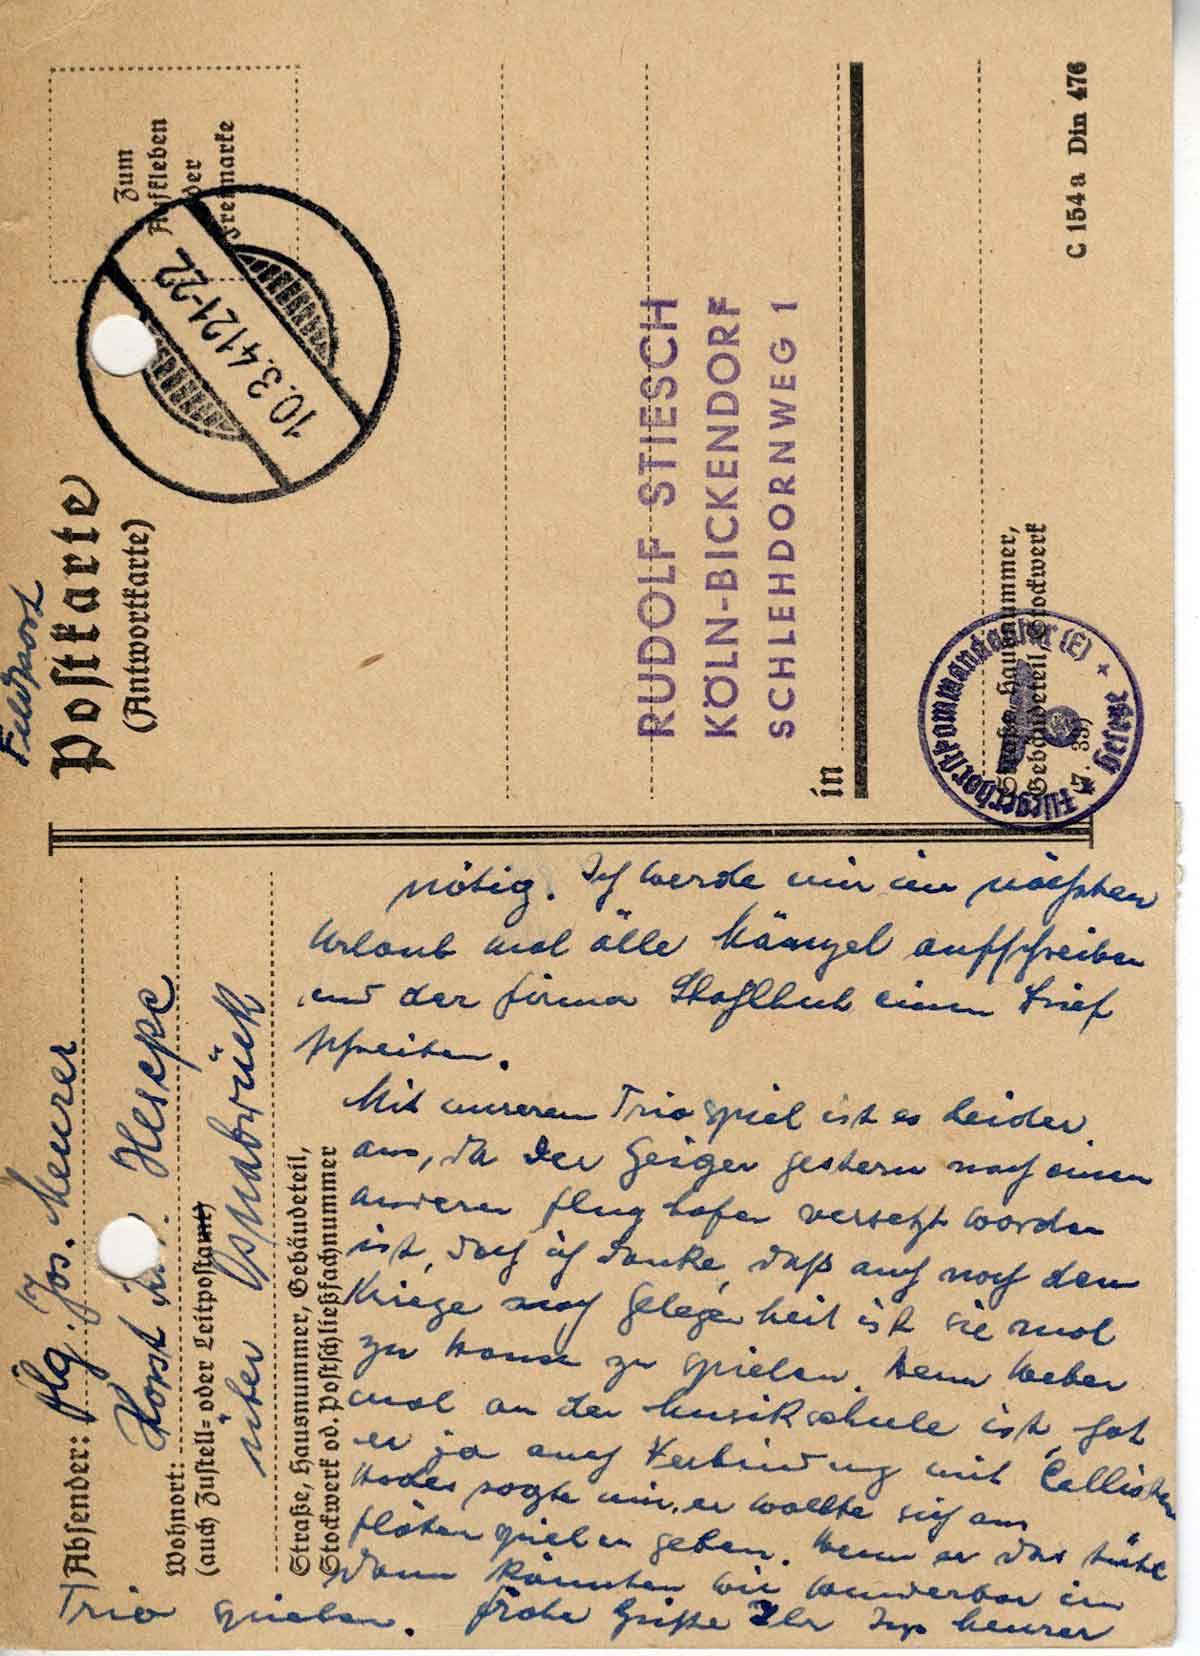 Feldpost
Postkarte
(Antwortkarte)
Zum
Aufkleben
der
Freimarke
10.3.41 21-22
RUDOLF STIESCH
KÖLN-BICKENDORF
SCHLEHDORNWEG 1
in
Straße, Hausnummer,
Gebäudeteil, Stockwerk
7. 39)
Fliegerhorstkommandantur (E)
Hesepe
C 154a Din 476
Absender: Flg. Jos. Meurer
Horst Hesepe
Wohnort:
(auch Zustell- oder Leitpostamt)
über Osnabrück
Straße, Hausnummer, Gebäudeteil,
Stockwerk od. Postschließfachnummer
nötig. Ich werde mir im nächsten
Urlaub mal alle Mängel aufschreiben
und der Firma einen Brief
schreiben.
Mit unserem Triospiel ist es leider
aus, da der Geiger gestern nach einem
anderen Flughafen versetzt worden
ist, doch ich denke, daß auch nach dem
Kriege noch Gelegenheit ist sie mal
zu Hause zu spielen. Wenn Weber
mal an der Musikschule ist, hat
er ja auch Verbindung mit Cellisten
sagte mir, er wollte sich ans
Flöten spielen geben. Wenn er das täte
dann könnten wir wunderbar im
Trio spielen. Frohe Grüße Ihr Jup Meurer